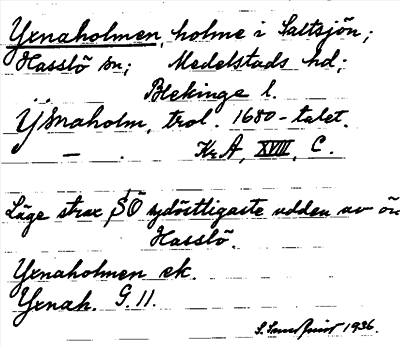 Yxnaholmen, holme i Saltsjön;
Hasslö sn; Medelstads hd;
Blekinge l.
Ÿxnaholm, trol. 1680-talet.
— . KrA, XVIII, C.
Läge strax SÖ sydöstligaste udden av ön
Hasslö.
Yxnaholmen ek.
Yxnah. G.11.
1936.